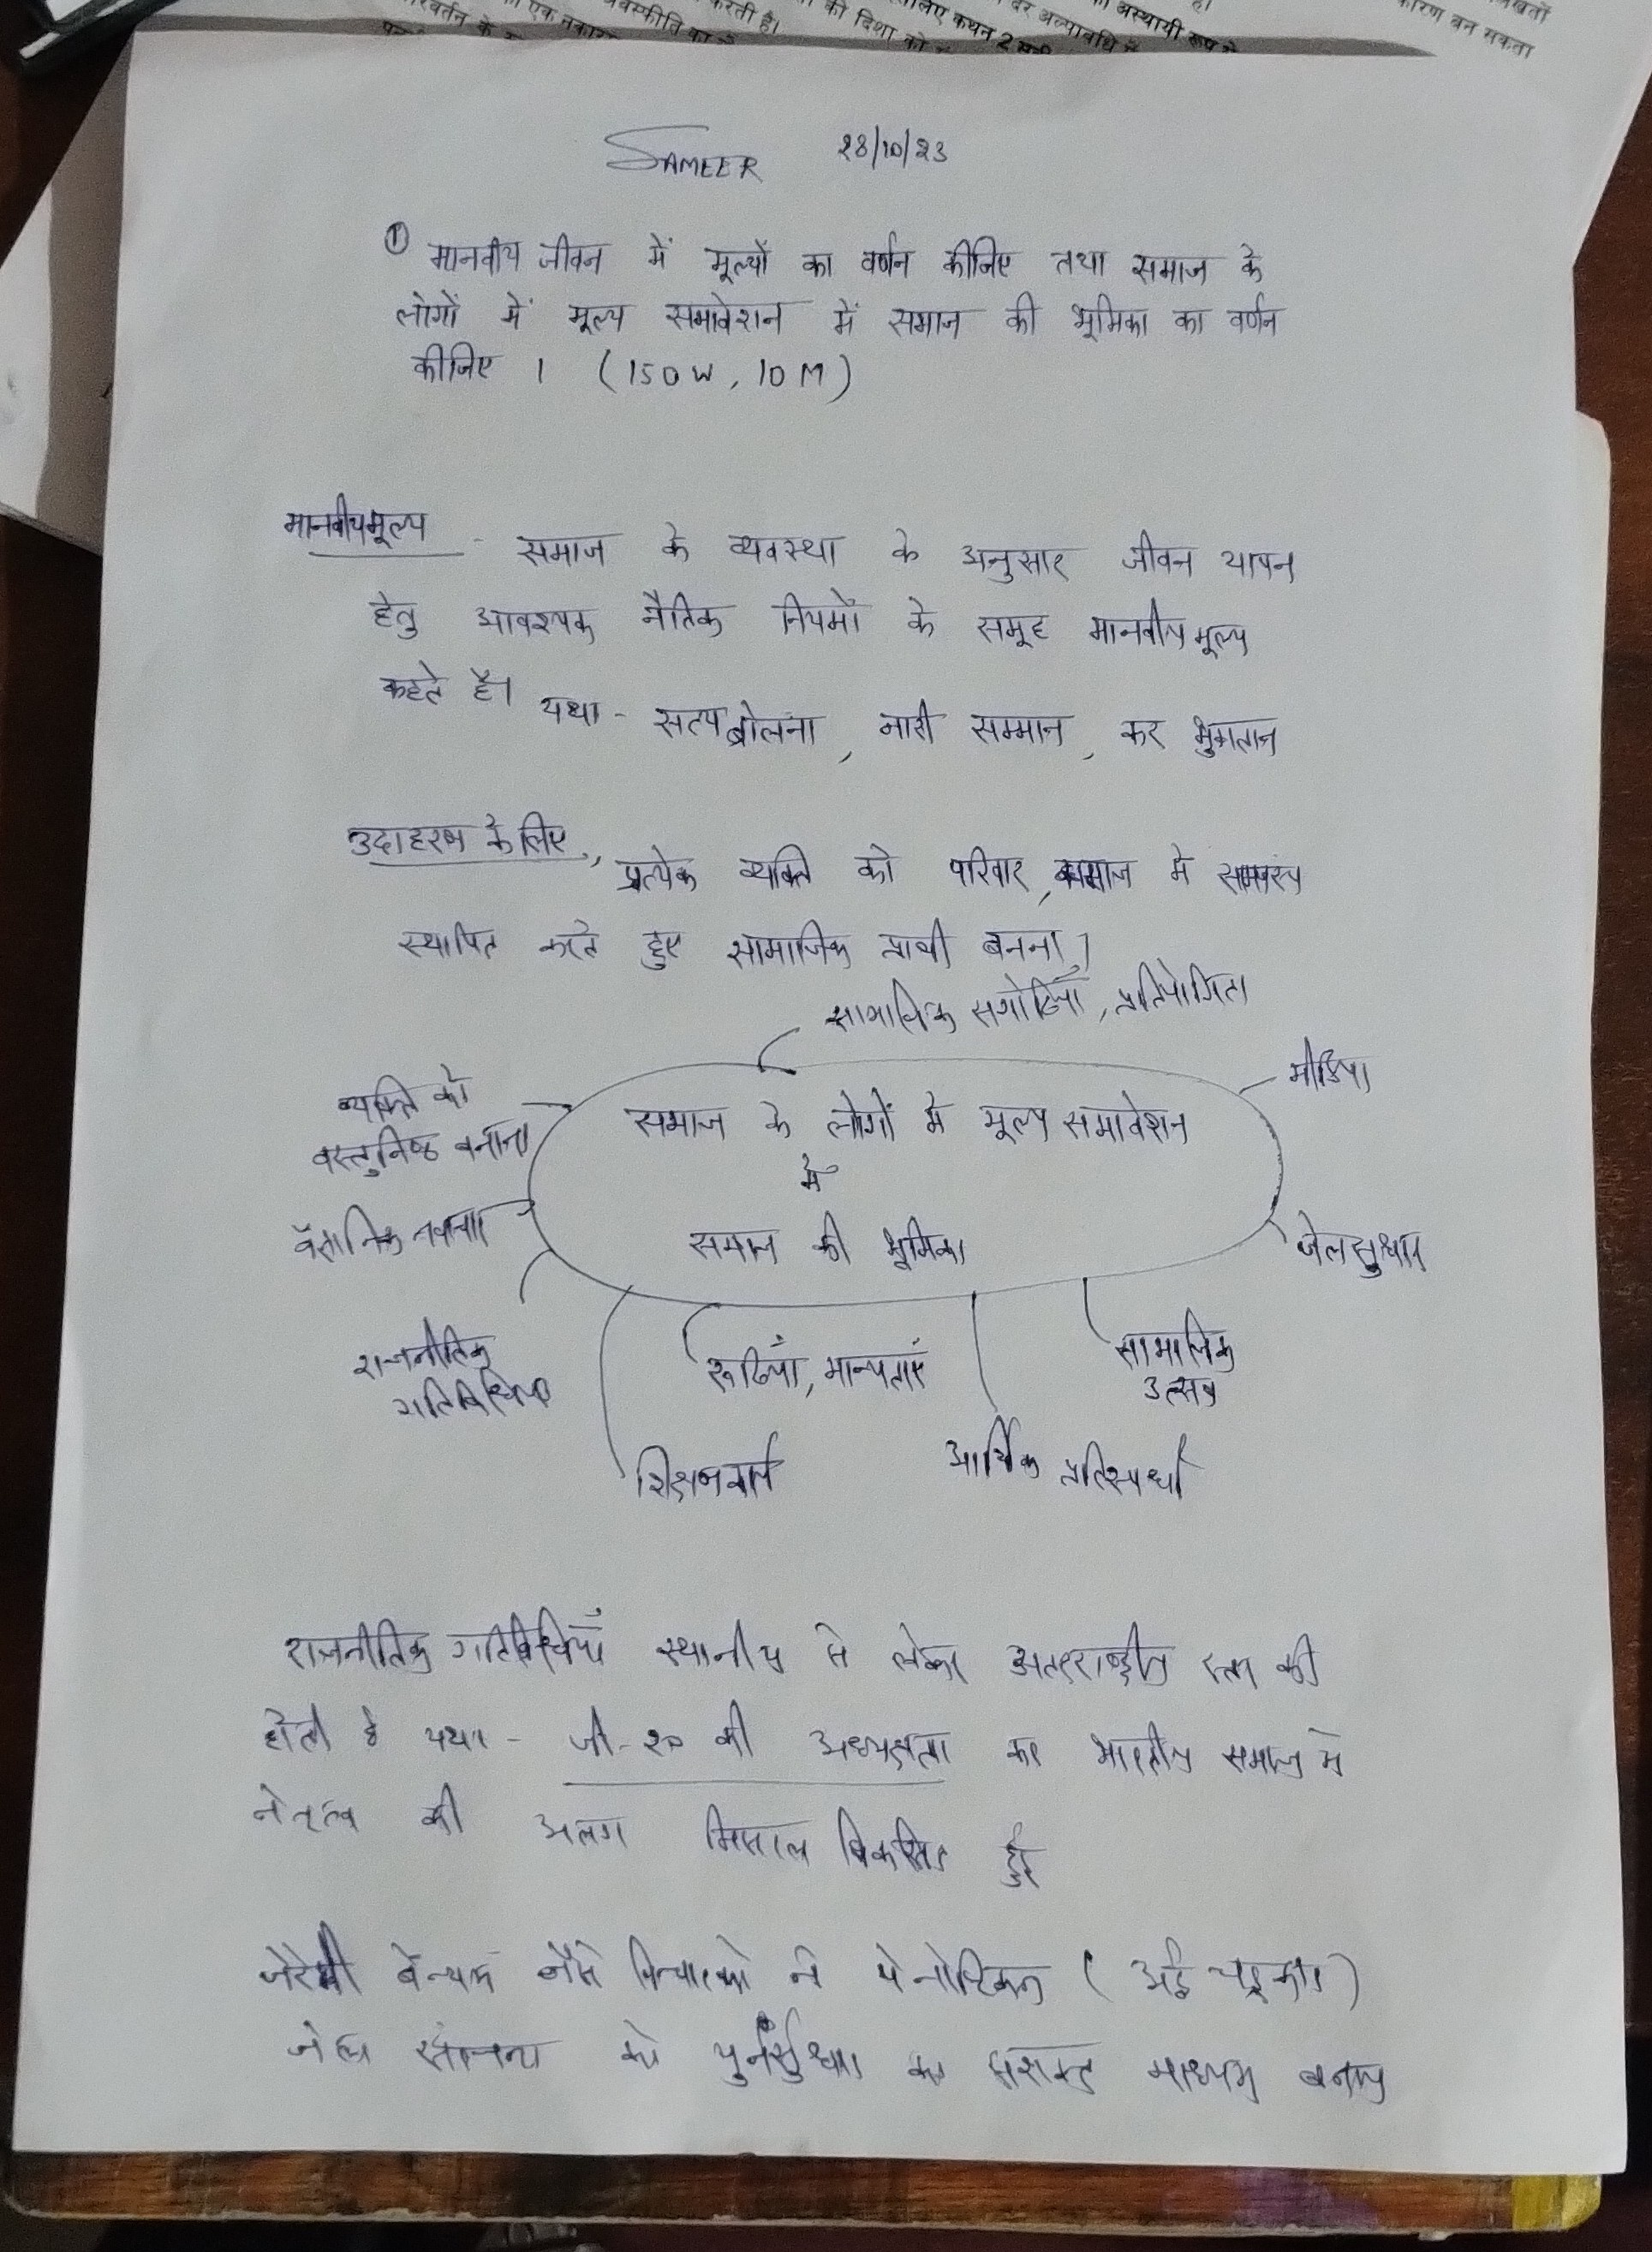 रिवर्तन के
का एक नकारा
वस्फीति का
करती है।
की दिशा को
लिए कथन 2
दर अल्पावधि में
का अस्थायी रूप से
है।
खतों
कारण बन सकता
SAMEER 28/10/23
① मानवीय जीवन में मूल्यों का वर्णन कीजिए तथा समाज के
लोगों में मूल्य समावेशन में समाज की भूमिका का वर्णन
कीजिए । (150 W, 10 M)
मानवीय मूल्य - समाज के व्यवस्था के अनुसार जीवन यापन
हेतु आवश्यक नैतिक नियमों के समूह मानवीय मूल्य
कहते है। यथा - सत्य बोलना, नारी सम्मान, कर भुगतान
उदाहरण के लिए, प्रत्येक व्यक्ति को परिवार, समाज मे
स्थापित करते हुए सामाजिक प्राणी बनना।
सामाजिक प्रतियोगिता
मीडिया
व्यक्ति को
वस्तुनिष्ठ बनाना
समाज के लोगों मे मूल्य समावेशन
मे
समाज की भूमिका
जेल सुधार
राजनीतिक
गतिविधियां
रूढियां, मान्यताएं
सामाजिक
उत्सव
शिक्षण कार्य
आर्थिक प्रतिस्पर्धा
राजनीतिक गतिविधियाँ स्थानीय से लेकर अंतरराष्ट्रीय स्तर की
होती है यथा - जी-२० की अध्यक्षता कर भारतीय समाज मे
नेतृत्व की अलग मिसाल विकसित हुई
जेरेमी बेन्थम जैसे विचारको ने पेनोप्टिकन (अर्द्ध चंद्रकार)
जेल को पुर्नसुधार का सशक्त माध्यम बनाया